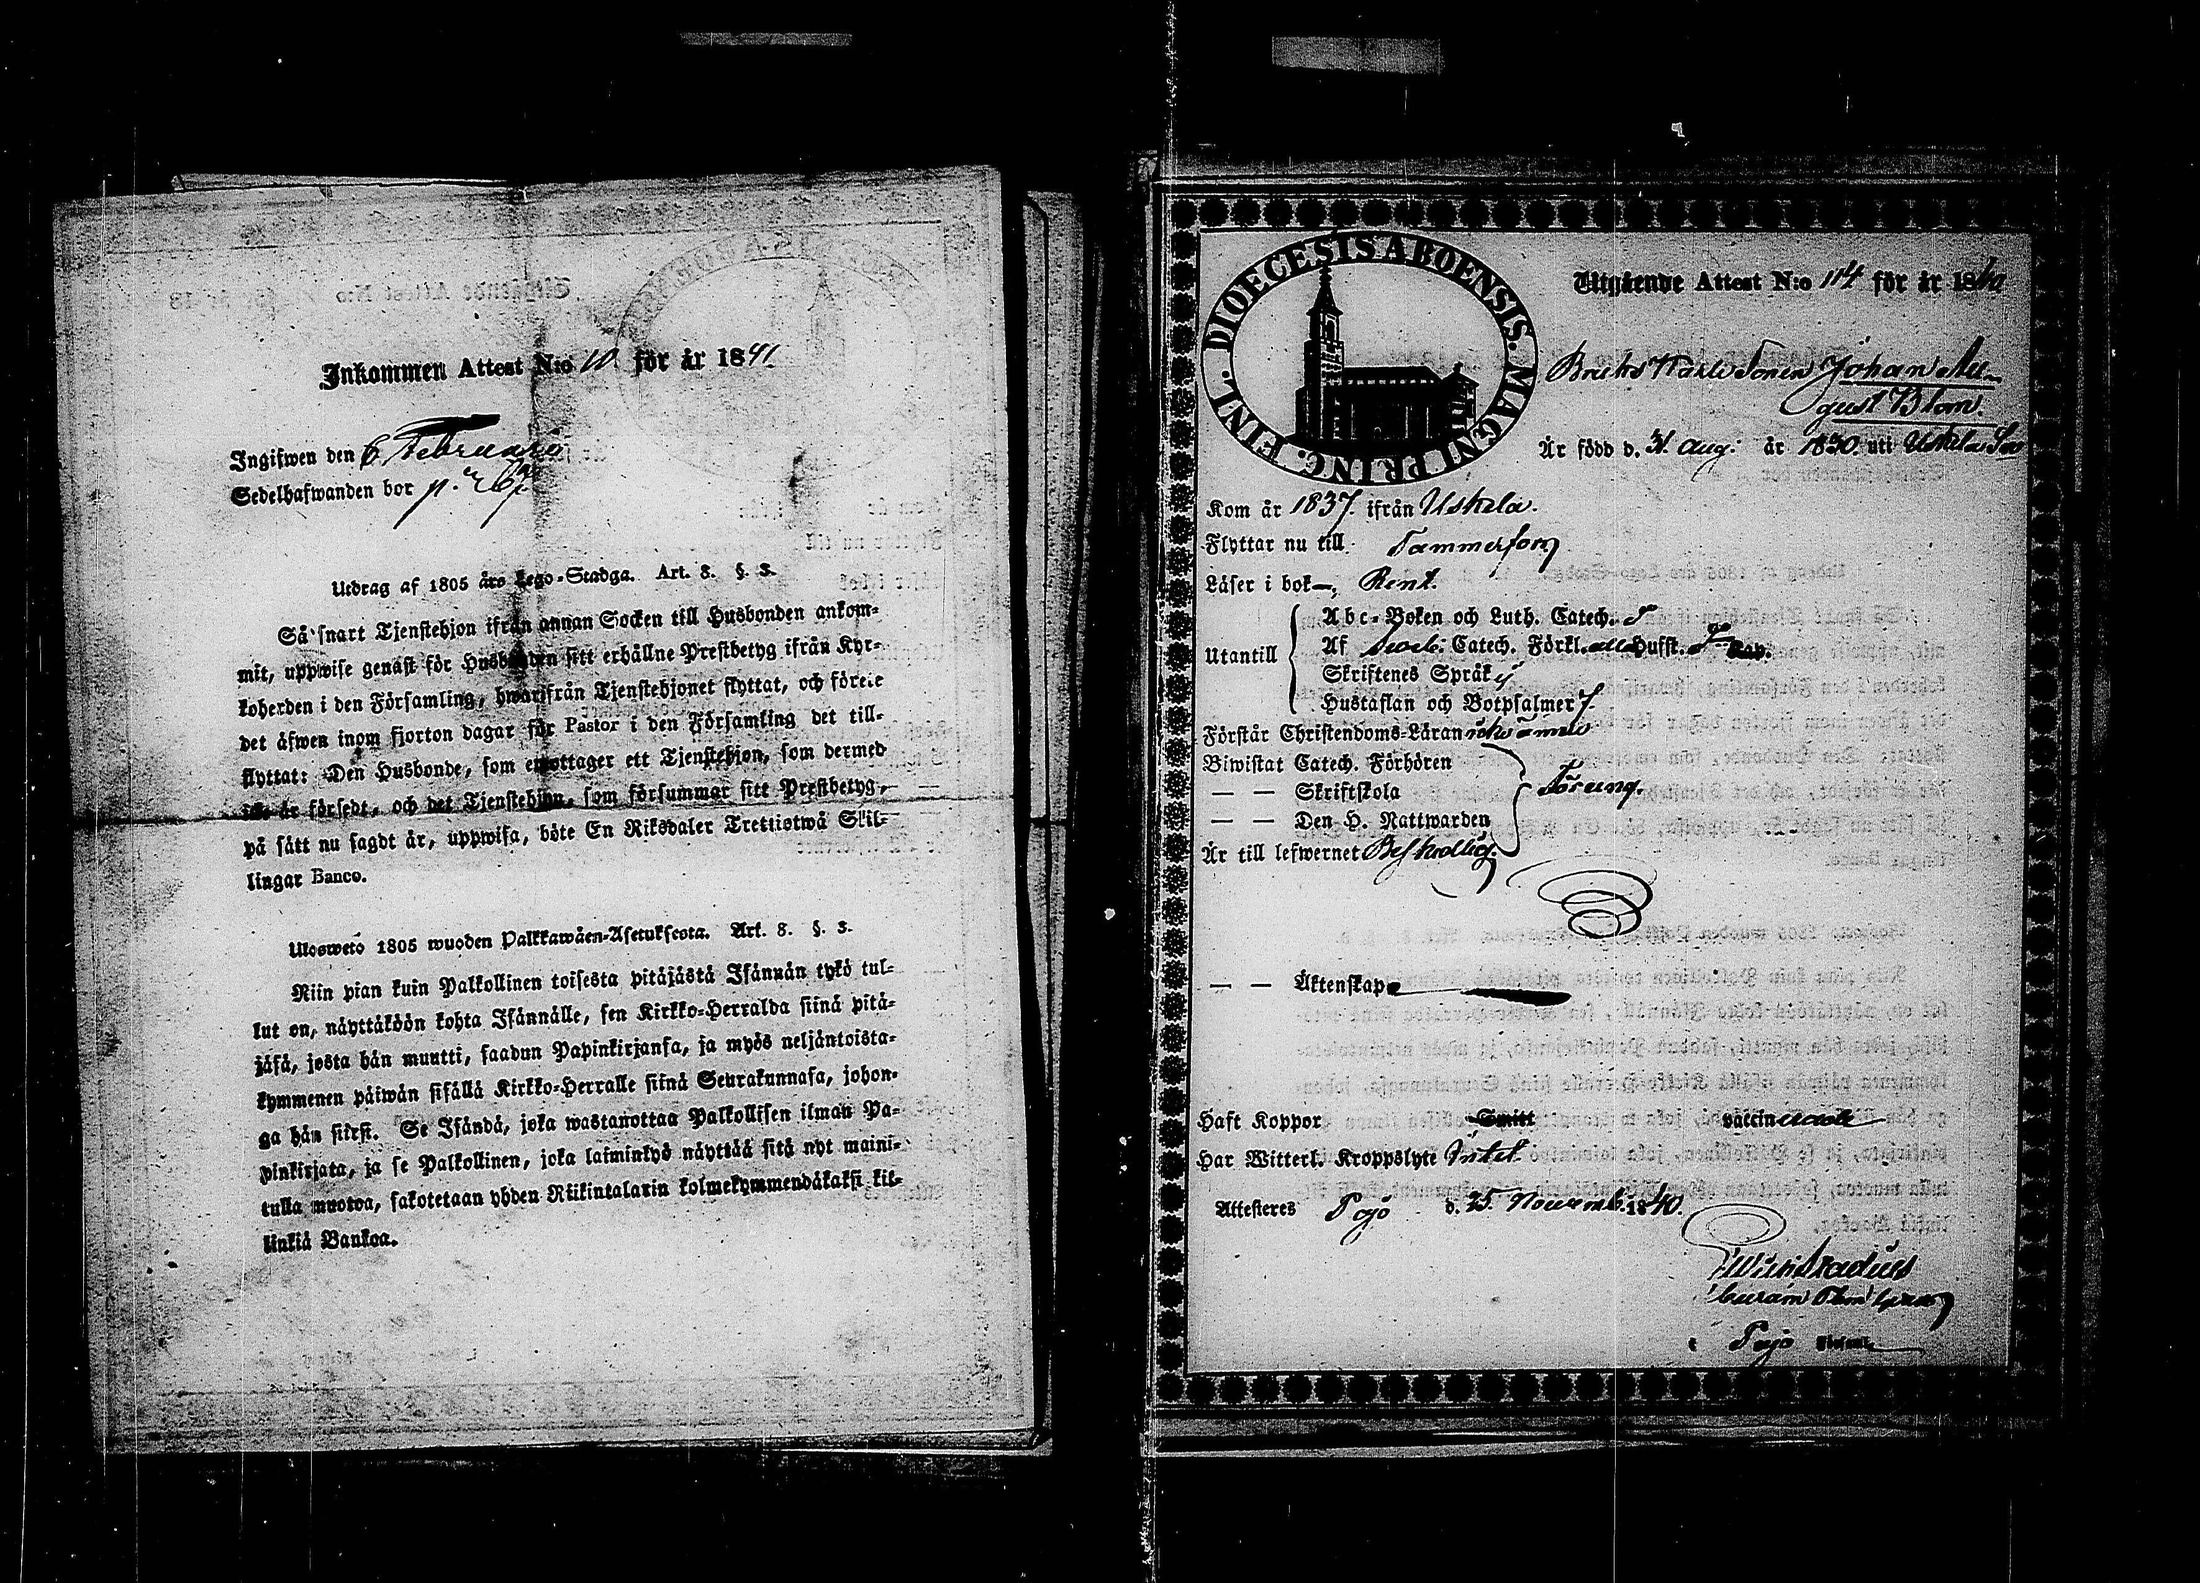 Inkommen Attest N:o 10. för år 1841.
Ingifwen den 6 Februarii
Sedelhafwanden bor p.
Utdrag af 1805 års Lego-Stadga. Art. 8. §. 3.
Så snart Tjenstehjon ifrån annan Socken till Husbonden ankom-
mit, uppwise genast för Husbonden sitt erhållne Prestbetyg ifrån Kyr-
koherden i den Församling, hwarifrån Tjenstehjonet flyttat, och förete
det äfwen inom fjorton dagar för Pastor i den Församling det till-
flyttat: Den Husbonde, som emottager ett Tjenstehjon, som dermed
är försedt, och det Tjenstehjon, som försummar sitt Prestbetyg,
på sätt nu sagdt är, uppwisa, böte En Riksdaler Trettiotwå Skil-
lingar Banco.
Ulosweto 1805 wuoden Palkkawäen-Asetuksesta. Art. 8. §. 3.
Niin pian kuin Palkollinen toisesta pitäjästä Isännän tykö tul-
lut on, näyttäköön kohta Isännälle, sen Kirkko-Herralda siinä pitä-
jäsä, josta hän muutti, saadun Papinkirjansa, ja myös neljäntoista-
kymmenen päiwän sisällä Kirkko-Herralle siinä Seurakunnasa, johon-
ga hän siirsi. Se Isändä, joka wastanottaa Palkollisen ilman Pa-
pinkirjata, ja se Palkollinen, joka laiminlyö näyttää sitä nyt maini-
tulla muotoa, sakotetaan yhden Riikintalarin kolmekymmendäkaksi kil-
linkiä Bankoa.
DIOECESIS ABOENSIS. MAGNI PRINC. FINL.
Utgående Attest N:o 114 för år 1840
Bruks Karls Sonen Johan Au-
gust Blom.
Är född d. 31 Aug: år 1830. uti Uskela
Kom år 1837. ifrån Uskela.
Flyttar nu till Tammerfors
Läser i bok Rent.
Utantill
Abc-Boken och Luth. Catech.
Af Sveb. Catech. Förkl. Hufst. Kap.
Skriftenes Språk
Hustaflan och Botpsalmer
Förstår Christendoms-Läran
Biwistat Catech. Förhören
— — Skriftskola
— — Den H. Nattwarden
För ung.
Är till lefwernet Beskedlig.
— — Äktenskap
Haft Koppor Smitt vaccin
Har Witterl. Kroppslyte Intet.
Attesteres Pojo d. 25. Novemb. 1840.
Pojo